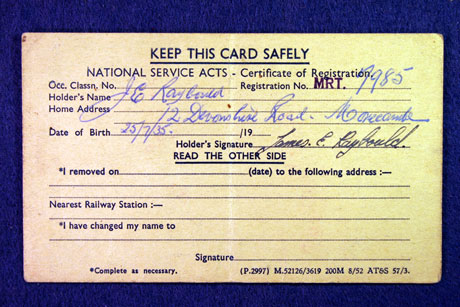 KEEP THIS CARD SAFELY
NATIONAL SERVICE ACTS - Certificate of Registration.
Occ. Classn. No. Registration No. MRT. 9985
Holder's Name J.E Raybould
Home Address 12 Devonshire Road. Morecambe
Date of Birth 25/7/35. /19
Holder's Signature James. E. Raybould.
READ THE OTHER SIDE
*I removed on (date) to the following address :—
Nearest Railway Station :—
*I have changed my name to
Signature
*Complete as necessary. (P.2997) M.52126/3619 200M 8/52 AT&S 57/3.